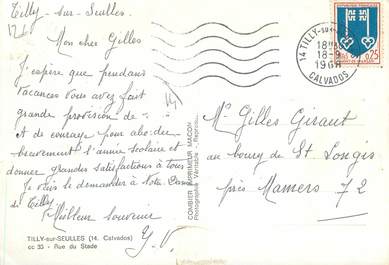 Tilly-sur-Seulles.
Mon cher Gilles
J'espère que pendant
vacances vous avez fait
grande provision de
et de courage pour aborder
bravement l'année scolaire et
donner grandes satisfactions à tous
Je vais le demander à Notre Dame
de Tilly
Meilleur souvenir
Y.V.
TILLY-sur-SEULLES (14. Calvados)
cc 35 - Rue du Stade
COMBIER IMPRIMEUR MACON
Photographie Véritable - Reprod.
14 TILLY-sur-
18H
18-9
1968
CALVADOS
0,25
Mr Gilles Giraut
au bourg de St Longis
près Mamers 72